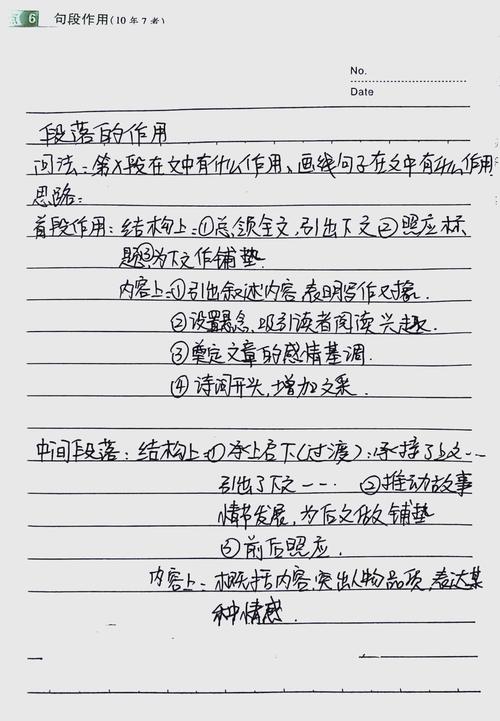 点6 句段作用(10年7考)
No.
Date
段落的作用
问法：第X段在文中有什么作用、画线句子在文中有什么作用
思路：
首段作用：结构上：①总领全文，引出下文②照应标
题③为下文作铺垫.
内容上：①引出叙述内容，表明写作对象.
②设置悬念，吸引读者阅读兴趣.
③奠定文章的感情基调.
④诗词开头，增加文采
中间段落：结构上：①承上启下(过渡)：承接了上文……
引出了下文…… ②推动故事
情节发展，为后文做铺垫
③前后照应.
内容上：概括内容，突出人物品质，表达某
种情感.